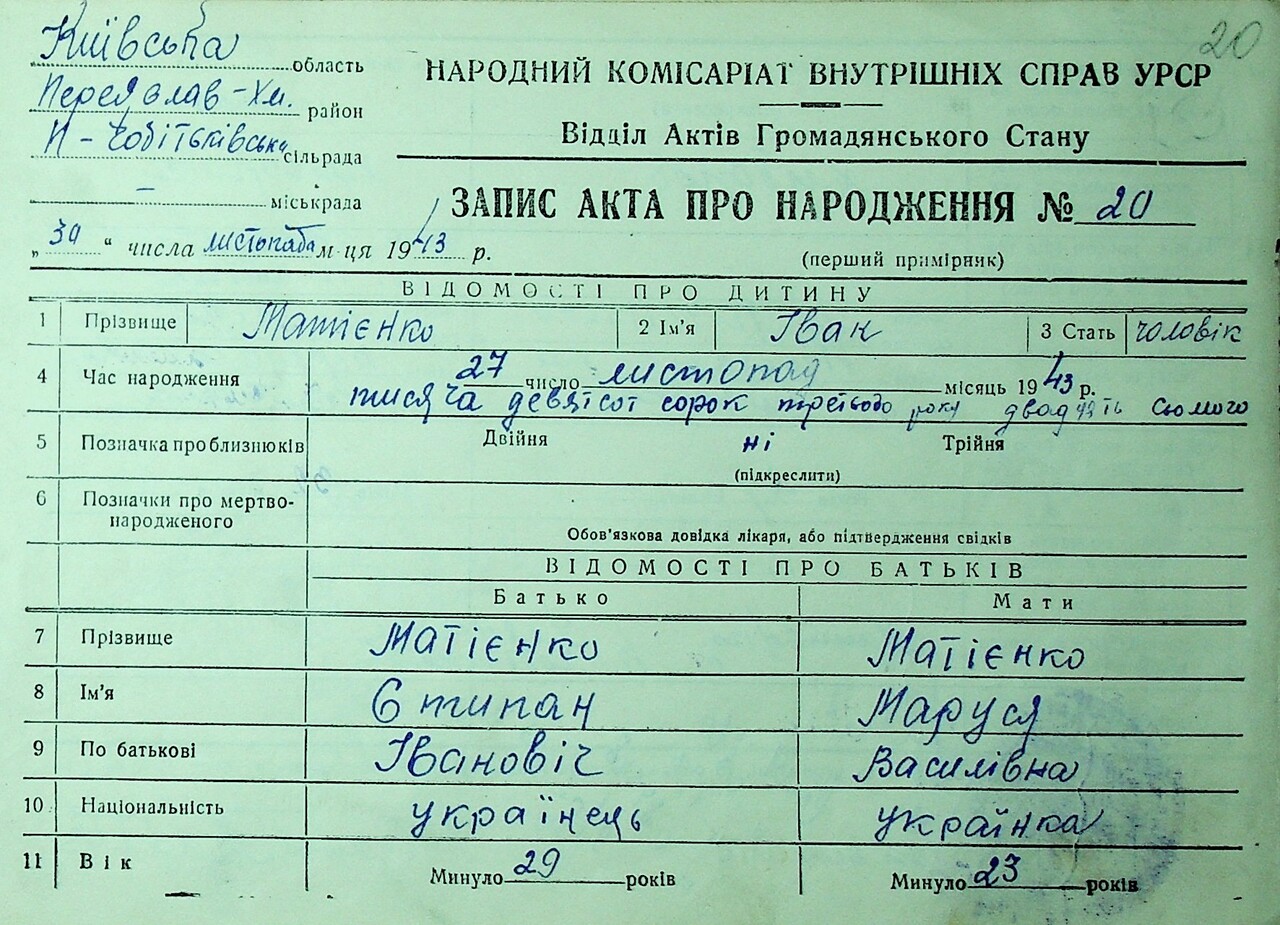 20
Київська область
Переяслав-Хм. район
П-Чобітьківська сільрада
– міськрада
НАРОДНИЙ КОМІСАРІАТ ВНУТРІШНІХ СПРАВ УРСР
Відділ Актів Громадянського Стану
ЗАПИС АКТА ПРО НАРОДЖЕННЯ № 20
(перший примірник)
„30“ числа листопада м ця 1943 р.
ВІДОМОСТІ ПРО ДИТИНУ
1 Прізвище Матієнко 2 Ім'я Іван 3 Стать чоловік
4 Час народження 27 число листопад місяць 1943 р.
тисяча девятсот сорок третього року двадцять сьомого
5 Позначка про близнюків Двійня ні Трійня
(підкреслити)
6 Позначки про мертво-
народженого
Обов'язкова довідка лікаря, або підтвердження свідків
ВІДОМОСТІ ПРО БАТЬКІВ
Батько Мати
7 Прізвище Матієнко Матієнко
8 Ім'я Стипан Маруся
9 По батькові Івановіч Василівна
10 Національність українець українка
11 Вік Минуло 29 років Минуло 23 років